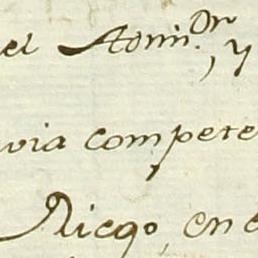 el Admin.Dor, y
via compete
Riego, en e